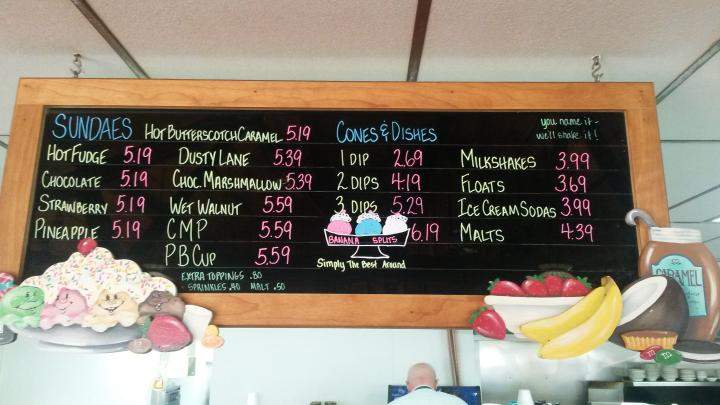 SUNDAES
HOT BUTTERSCOTCH CARAMEL 5.19
HOT FUDGE 5.19
CHOCOLATE 5.19
STRAWBERRY 5.19
PINEAPPLE 5.19
DUSTY LANE 5.39
CHOC. MARSHMALLOW 5.39
WET WALNUT 5.59
CMP 5.59
PB CUP 5.59
EXTRA TOPPINGS .80
SPRINKLES .40 MALT .50
CONES & DISHES
1 DIP 2.69
2 DIPS 4.19
3 DIPS 5.29
BANANA SPLITS 6.19
Simply The Best Around
you name it -
we'll shake it!
MILKSHAKES 3.99
FLOATS 3.69
ICE CREAM SODAS 3.99
MALTS 4.39
CARAMEL
m m